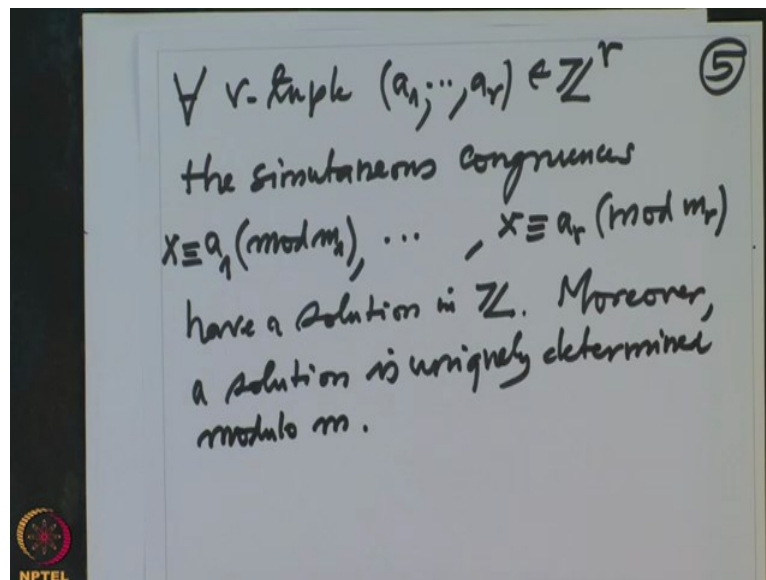 ∀ r-tuple (a₁,…,aᵣ) ∈ ℤʳ ⑤
the simutaneous congruences
x≡a₁(mod m₁), … , x≡aᵣ(mod mᵣ)
have a solution in ℤ. Moreover,
a solution is uniquely determined
modulo m.
NPTEL